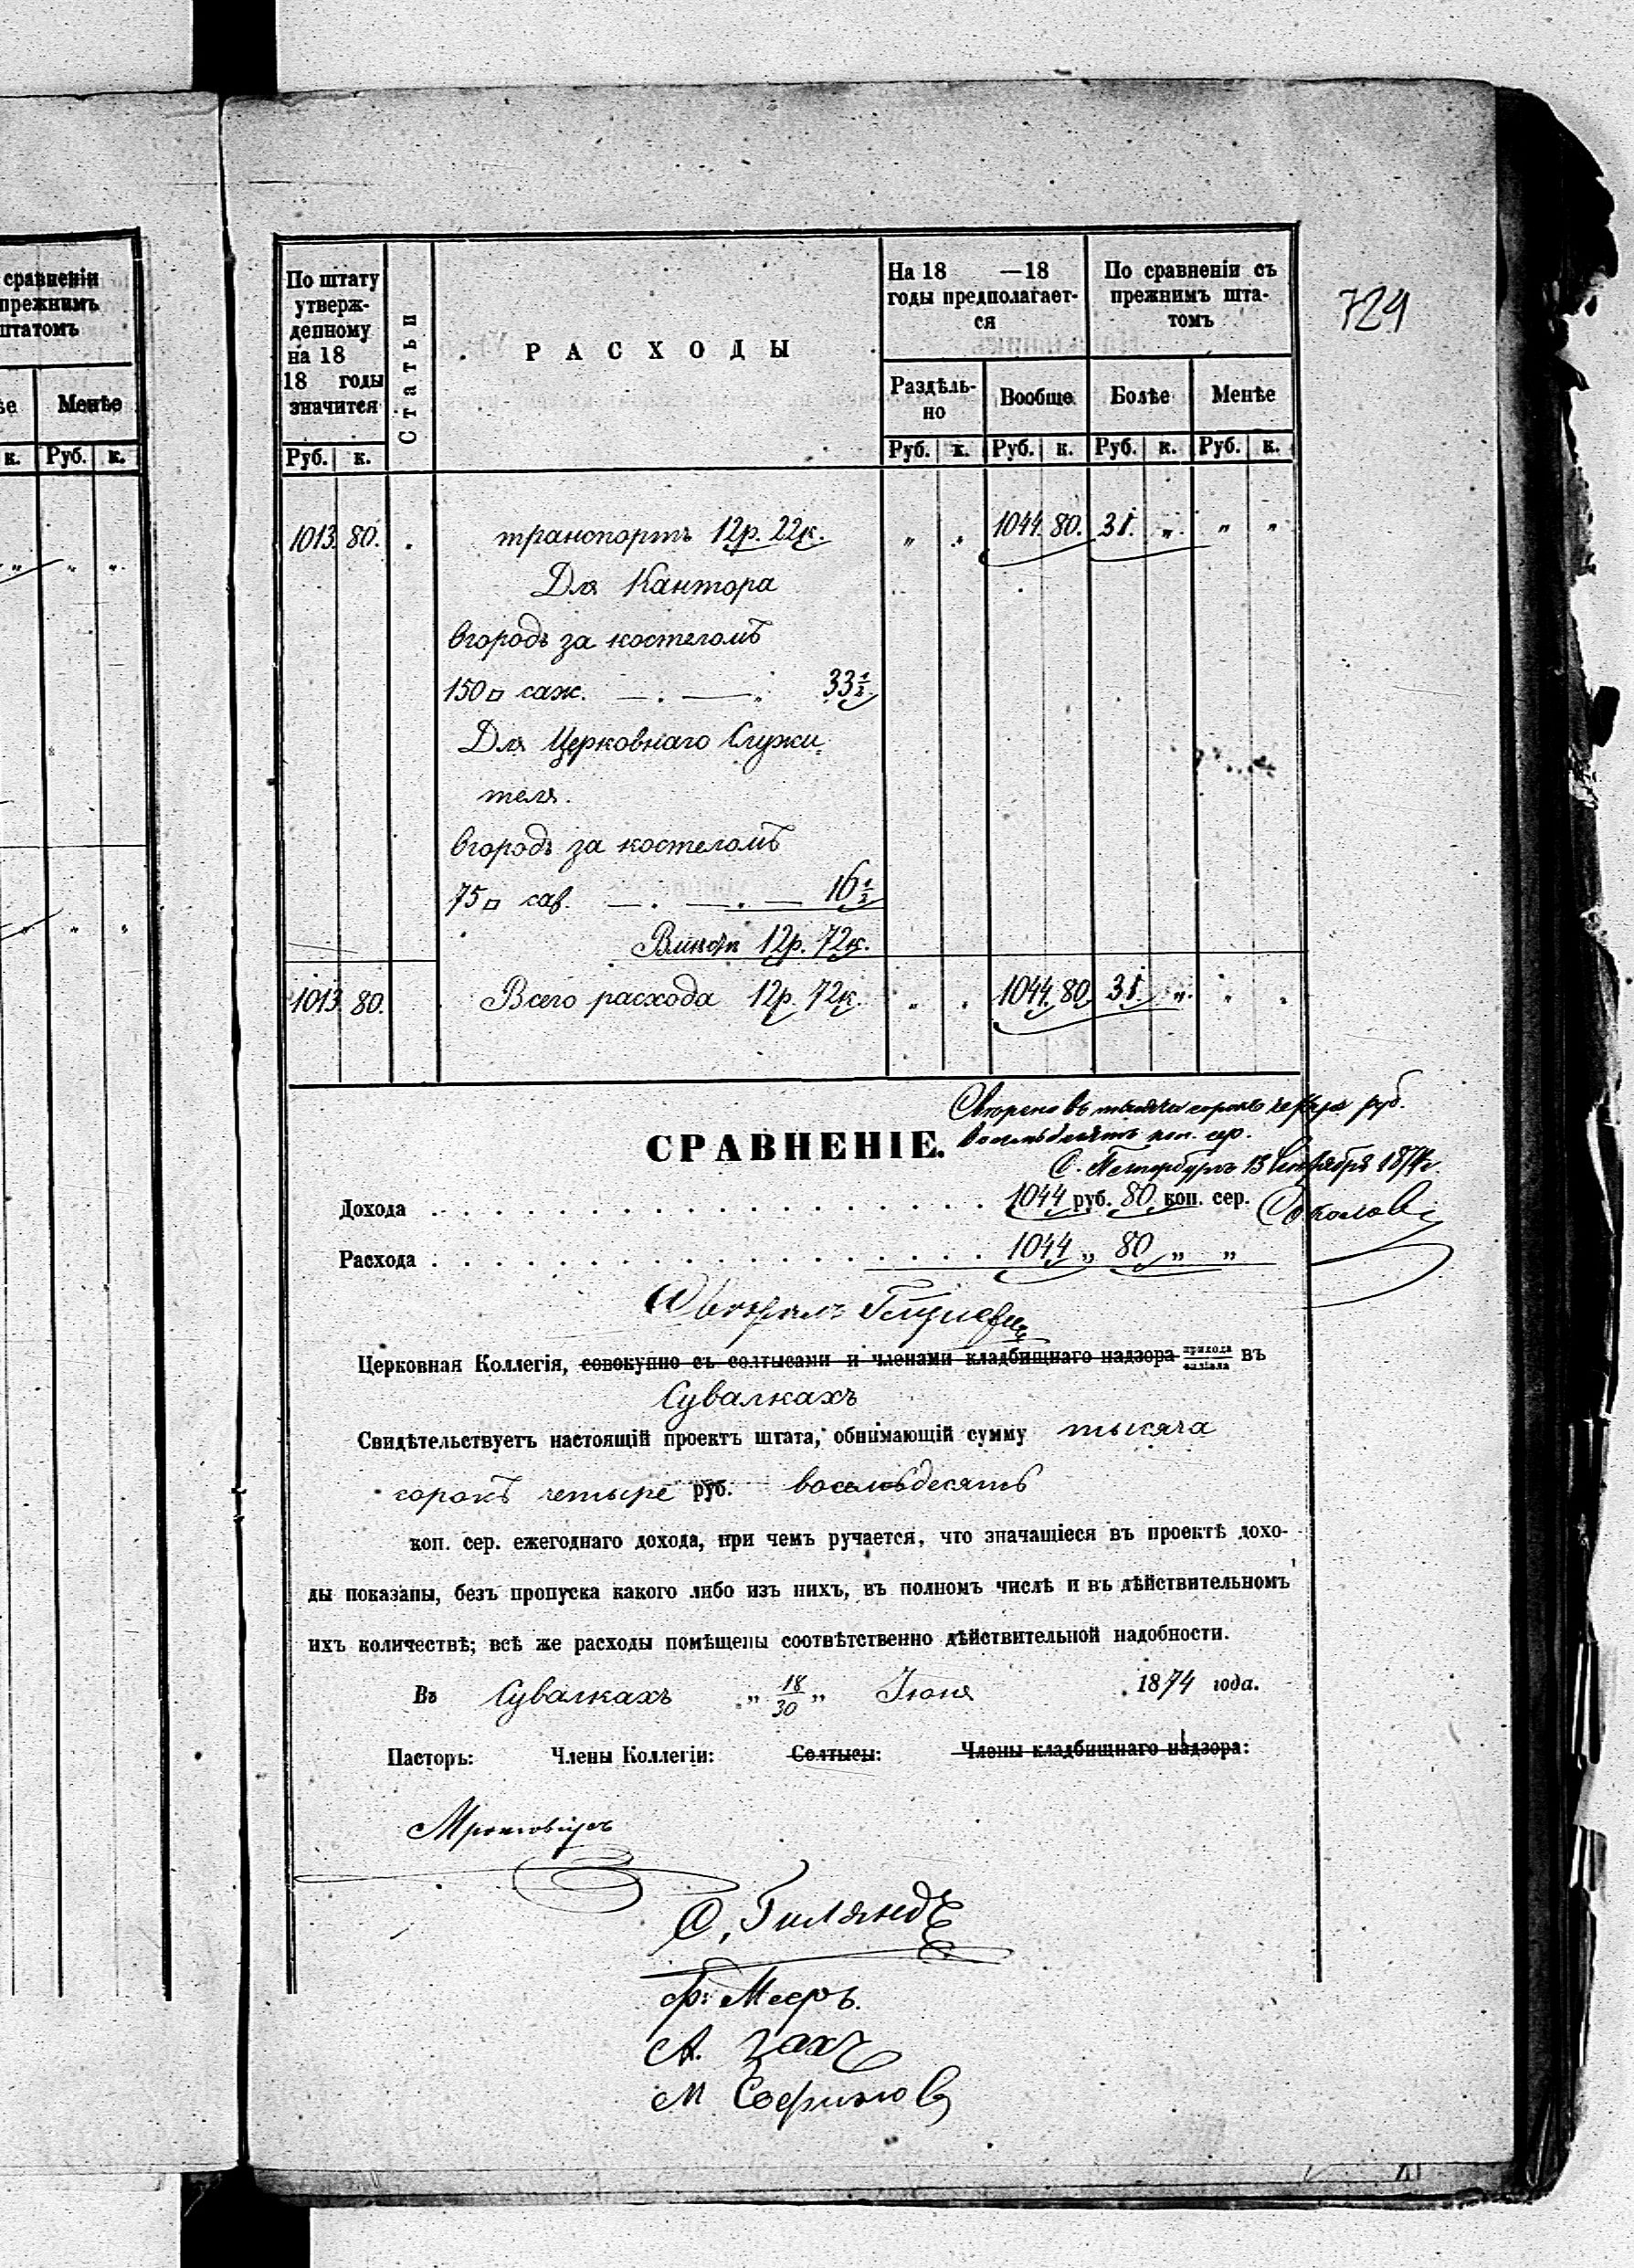 сравненіи
прежнимъ
штатомъ
Менѣе
к. Руб. к.
724
По штату
утверж-
денному
на 18
18 годы
значится
Руб. к.
Статьи
РАСХОДЫ
На 18 —18
годы предполагает-
ся
Раздѣль-
но
Вообще
Руб. к. Руб. к.
По сравненіи съ
прежнимъ шта-
томъ
Болѣе Менѣе
Руб. к. Руб. к.
1013. 80. транспортъ 12р. 22к. „ „ 1044. 80. 31. „ „ „
Для Кантора
вгородѣ за костеломъ
150□ саж. — . — . 33½
Для Церковнаго Служи-
теля.
вгородѣ за костеломъ
75□ саж. — . — . — 16½
12р. 72к.
1013. 80. Всего расхода 12р. 72к. „ „ 1044. 80 31. „ „ „
руб.
коп. сер.
С. Петербургъ 13 Сентября 1874 г.
Соколовъ
СРАВНЕНІЕ.
Дохода 1044 руб. 80 коп. сер.
Расхода 1044 „ 80 „ „
Церковная Коллегія, совокупно съ солтысами и членами кладбищнаго надзора прихода филіала въ
Сувалкахъ
Свидѣтельствуетъ настоящій проектъ штата, обнимающій сумму тысяча
сорокъ четыре руб. восемьдесятъ
коп. сер. ежегоднаго дохода, при чемъ ручается, что значащіеся въ проектѣ дохо-
ды показаны, безъ пропуска какого либо изъ нихъ, въ полномъ числѣ и въ дѣйствительномъ
ихъ количествѣ; всѣ же расходы помѣщены соотвѣтственно дѣйствительной надобности.
Въ Сувалкахъ „ 18/30 „ Іюня 1874 года.
Пасторъ: Члены Коллегіи: Солтысы: Члены кладбищнаго надзора:
С. Гиляндъ
А. Захъ